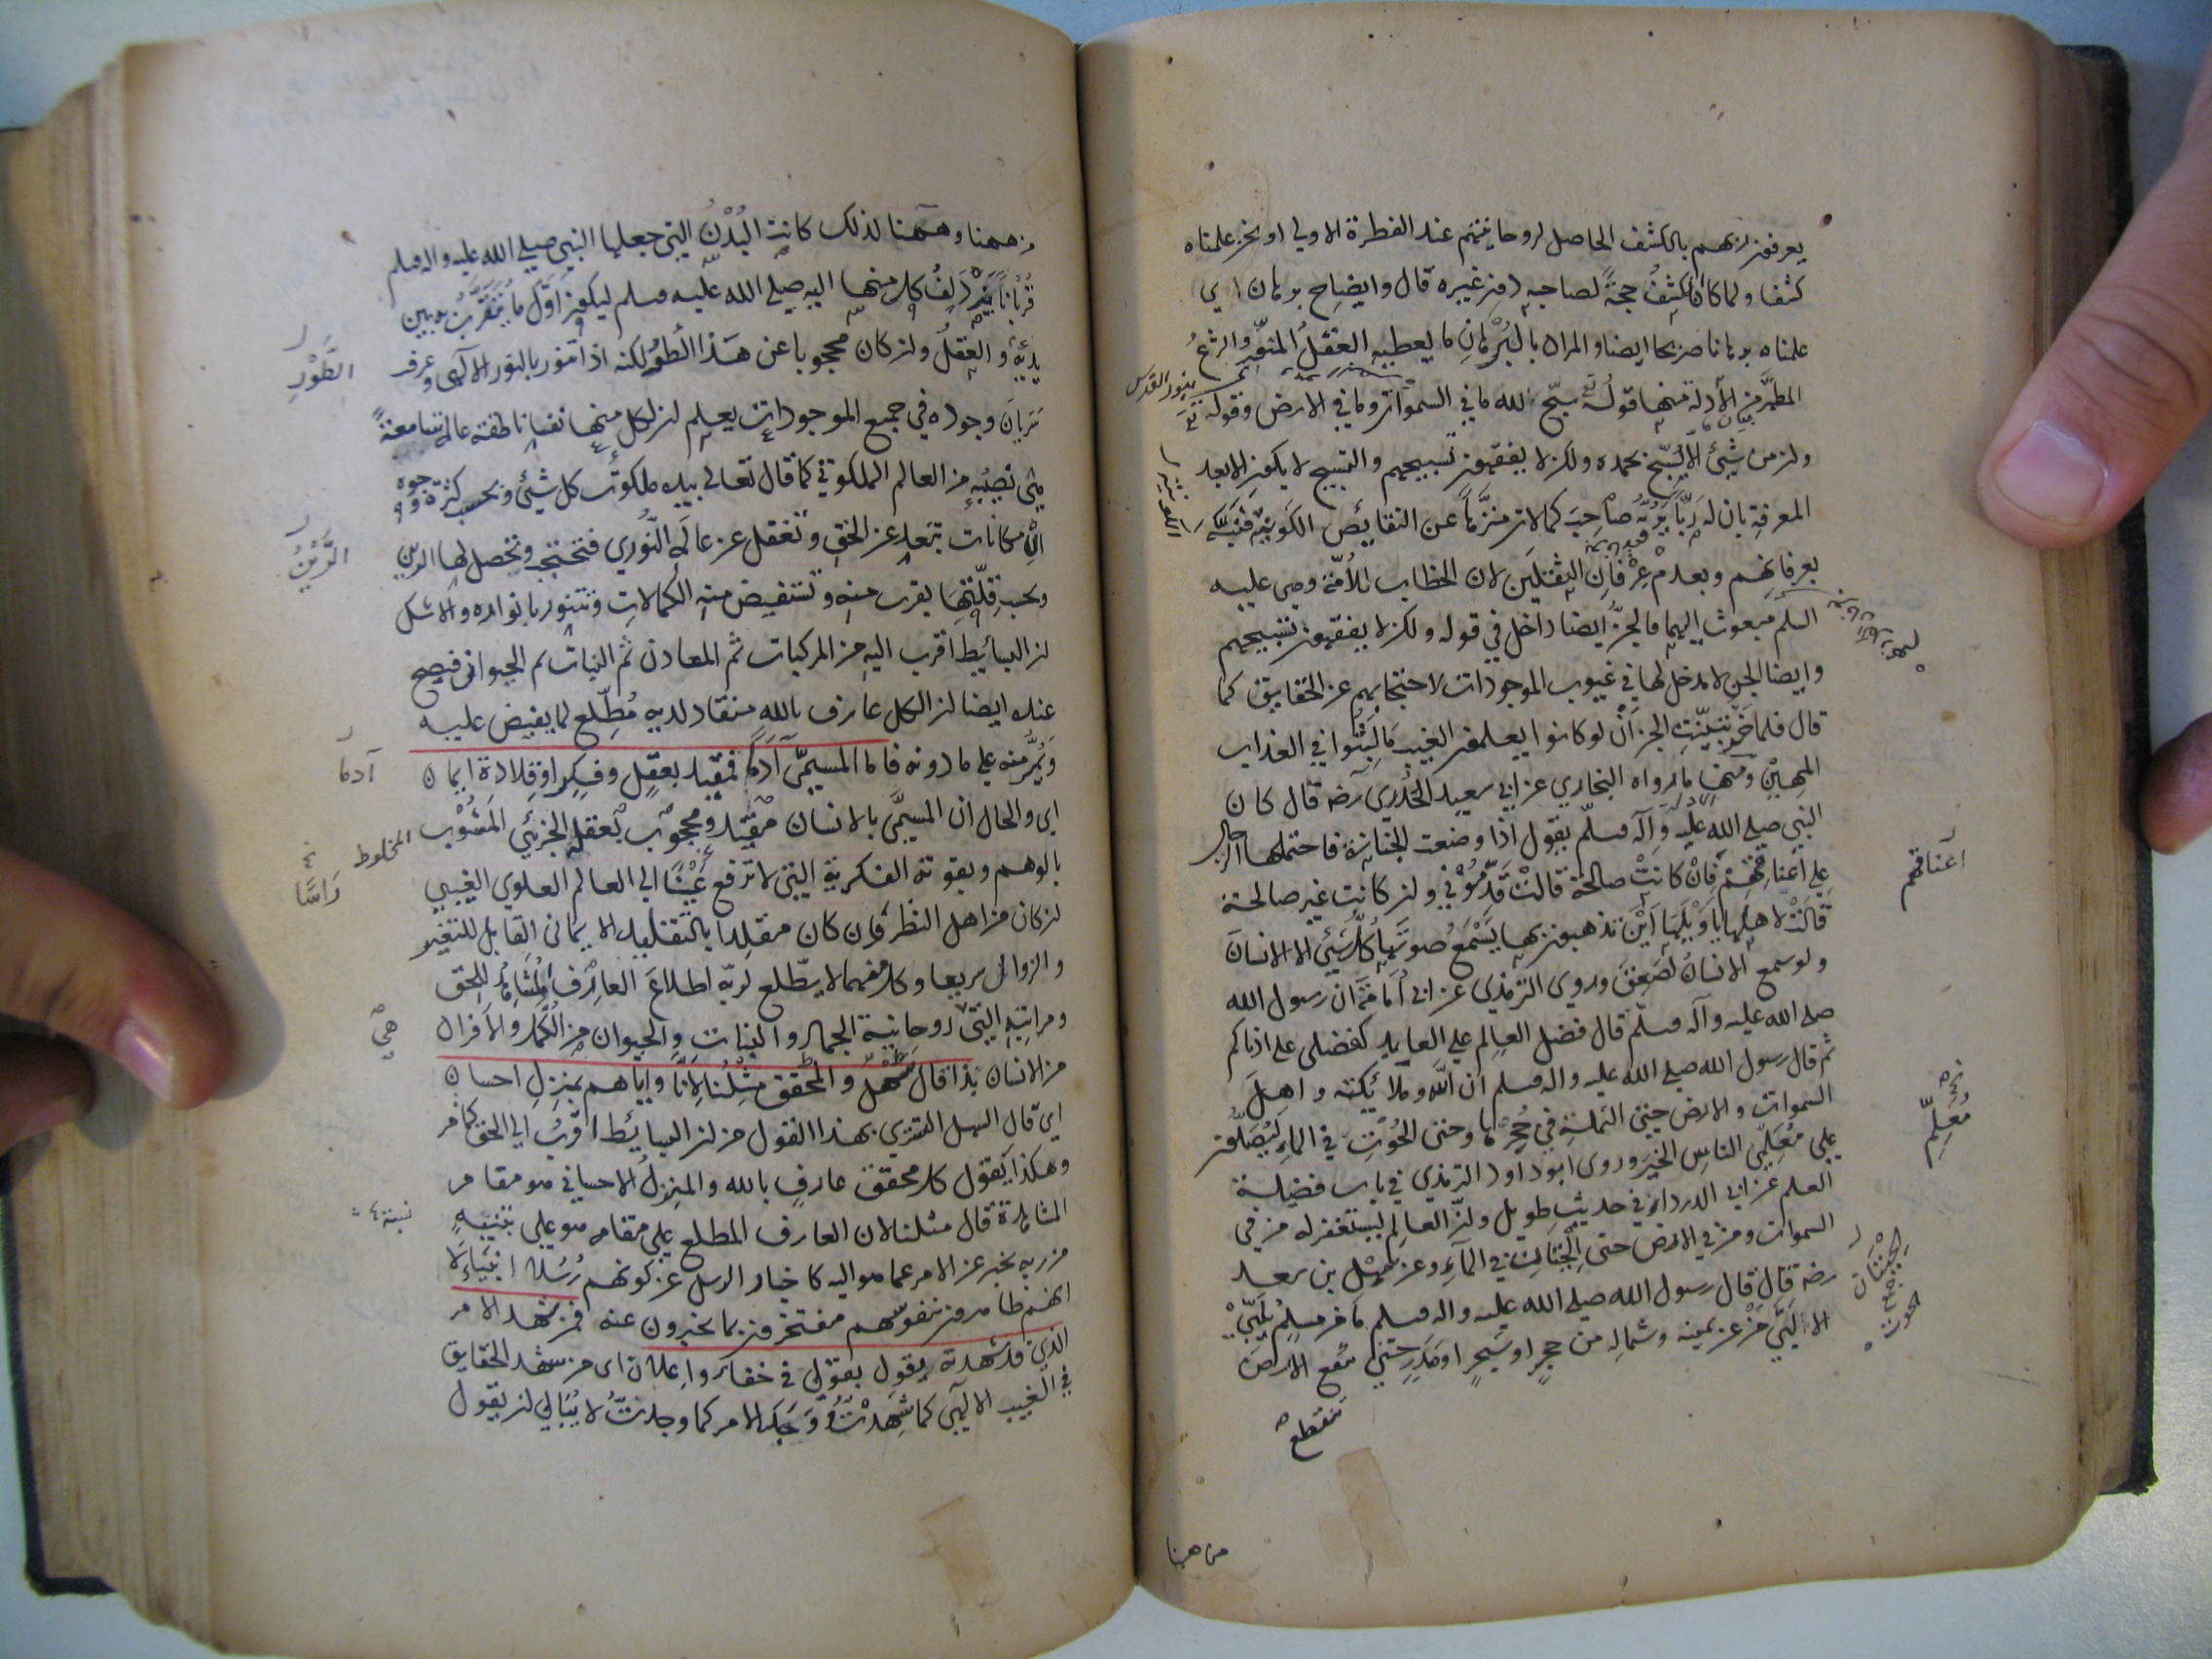 يعرفون ربهم بالكشف الحاصل لروحانيتهم عند الفطرة الاولي او نحن علمناه
كشفا ولما كان الكشفُ حجةً لصاحبه دون غيره قال وايضاح برهان اي
علمناه برهانا صريحا ايضا والمراد بالبُرْهانِ ما يعطيه العقلُ المنوّر والشرعُ
بنور القدس
المطهَّر من الأدلة منها قوله تع سبّح لله ما في السموات وما في الارض وقوله تع
وان من شيئ الا يُسَبّح بحمده ولكن لا يفقهون تسبيحهم والتسبيح لا يكون الا بعد
المعرفةِ بان له رَبّاً يَرُبّه صاحِبَ كمالات منزَّهاً عن النقايص الكونية فنبّه
بعرفانهم وبعدم عِرْفانِ الثقلَين لان الخطاب للأمة وهي عليه
السلم مبعوث اليهما فالجنّ ايضا داخل في قوله ولكن لا يفقهون تسبيحهم
وايضا الجن لا مدخل لها في غيوب الموجودات لاحتجابهم عن الحقايق كما
قال فلما خرّ تبيّنتِ الجن اَنْ لو كانوا يعلمون الغيب مَا لَبِثُوا في العذاب
المهين ومنها ما رواه البخاري عن ابي سعيد الخُدْري رضه قال كان
النبي صلي الله عليه وآله وسلّم يقول اذا وضعت الجنازة فاحتملها الرجال
علي اعناقهم فَاِنْ كانَتْ صالحة قالتْ قَدِّمُوني وان كانت غير صالحة
اعناقهم
قالَتْ لاهلِها يا وَيْلَهَا اَيْنَ تذهبون بها يَسْمَعُ صوتَها كلُّ شَيْئٍ الا الانسانَ
ولو سمع الانسانُ لصَعِقَ وروي الترمذي عن ابي أُمامَة ان رسول الله
صلي الله عليه وآله وسلّم قال فضل العالِم علي العابد كفضلي علي ادناكم
ثم قال رسول الله صلي الله عليه واله وسلم ان اللهَ وملائكته واهلَ
السموات والارض حتي النملةِ في جُحْرِها وحتي الحُوْتِ في الماء ليُصلّون
علي مُعَلِّمي الناسِ الخيرَ وروي ابو داود الترمذي في باب فضيلة
مُعَلِّمِ
العلم عن ابي الدرداء في حديث طويل وانّ العالِم ليستغفر له من في
السموات ومن في الارض حتي الحِيْتانُ في المآءِ وعن سهل بن سعد
رضه قال قال رسول الله صلي الله عليه واله وسلم ما من مسلمٍ يُلَبّي
الا لَبّي مَنْ عن يمينه وشماله من حجرٍ او شجرٍ او مَدَرٍ حتي تنقطع الارضُ
الحِيْتان
تنقطع
من ههنا
من ههنا وههنا لذلك كانتِ البُدْنُ التي جعلها النبي صلي الله عليه واله وسلم
قُرْباناً يَزْدَلِفُ كل منها اليه صلي الله عليه وسلم ليكون اوّل ما يتقرّبُ به بين
يديه والعقلُ وان كان محجوبا عن هذا الطور لكنه اذا تنور بالنور الالهي وعرف
الطَّوْرِ
سَرَيانَ وجوده في جميع الموجودات يعلم ان لكل منها نفسا ناطقة عالمة سامعةً
هي نصيبُه من العالم الملكوتي كما قال تعالي بيده ملكوتُ كل شيئ وبحسب كثرة وجوه
الامكانات تبعد عن الحق وتغفل عن عالَمِهِ النُّوري فتحتجب وتحصل لها الرين
الرَّيْنُ
وبحسب قِلّتِها يقرب منه وتستفيض منه الكمالاتِ وتتنوّر بانواره ولا شك
ان البسائط اقرب اليه من المركبات ثم المعادن ثم النبات ثم الحيوان فيصح
عنده ايضا ان الكل عارف بالله منقاد لديه مُطّلِع لما يفيض عليه
ويَمُرُّ منه علي ما دونه فاما المسمّي آدما فمقيد بعقلٍ وفكرٍ او قلادة ايمان
آدما
اي والحال ان المسمَّي بالانسان مقيّد ومحجوب بعقله الجزئي المَشُوْب
المخلوط
بالوهم وبقوته الفكرية التي لا ترفع رَأسًا الي العالم العلوي الغيبي
رَاسًا
ان كان من اهل النظر وان كان مقلدا بالتقليد الايماني القابل للتغير
والزوال سريعا وكل منهما لا يطّلع لربّه اطلاعَ العارف المُشاهد للحق
ومراتبه التي روحانية الجماد والنبات والحيوان من الكُمَّل والافراد
هي
من الانسان بذا قال سَهْلٌ والمحقق مِثْلُنا لاَِنّا واياهم بمنزلِ احسان
اي قال السهل التستري بهذا القول من ان البسائط اقرَبُ الي الحق كما مر
وهكذا يقول كل محقق عارفٍ بالله والمنزلُ الاحساني هو مقام
المشاهدة قال مثلنا لان العارف المطلع علي مقامه هو علي بيّنةٍ
من ربه يخبر عن الامر عما هو اليه كاخبار الرسل عن كونهم رُسُلا انبياء لا
انهم ظاهرون بنفوسهم مفتخرون بما يخبرون عنه فمن شهد الامر
الذي قد شهدته يقول بقولي في خفاء واعلان اي من شهد الحقايق
في الغيب الالهي كما شَهِدْتُهُ ووَجَد الامر كما وجدتُّ لا يُبَالي ان يقول